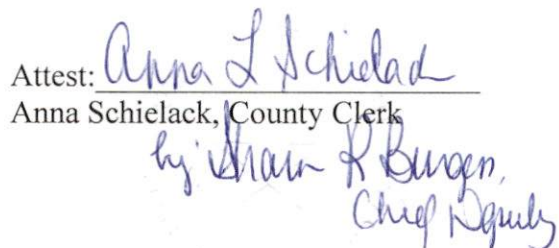 Attest: Anna L Schielack
Anna Schielack, County Clerk
by Sharon R Burgen,
Chief Deputy